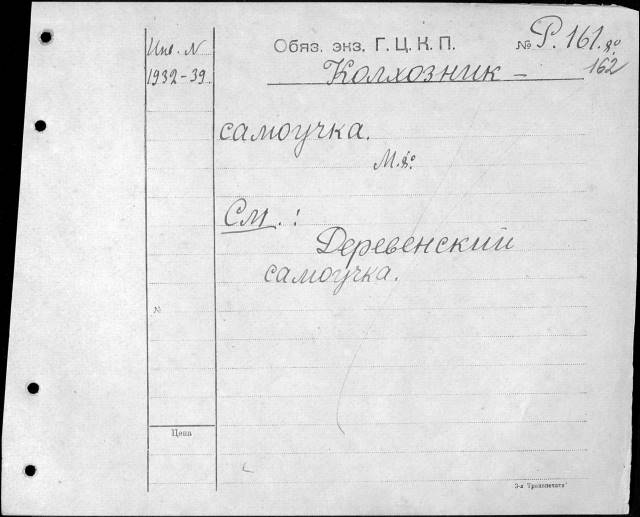 Инв. N
1932-39
Обяз. экз. Г. Ц. К. П.
№ Р. 161. 8º
162
Колхозник –
самоучка.
М. 8º.
См. :
Деревенский
самоучка.
№
Цена
3-я Транспечать